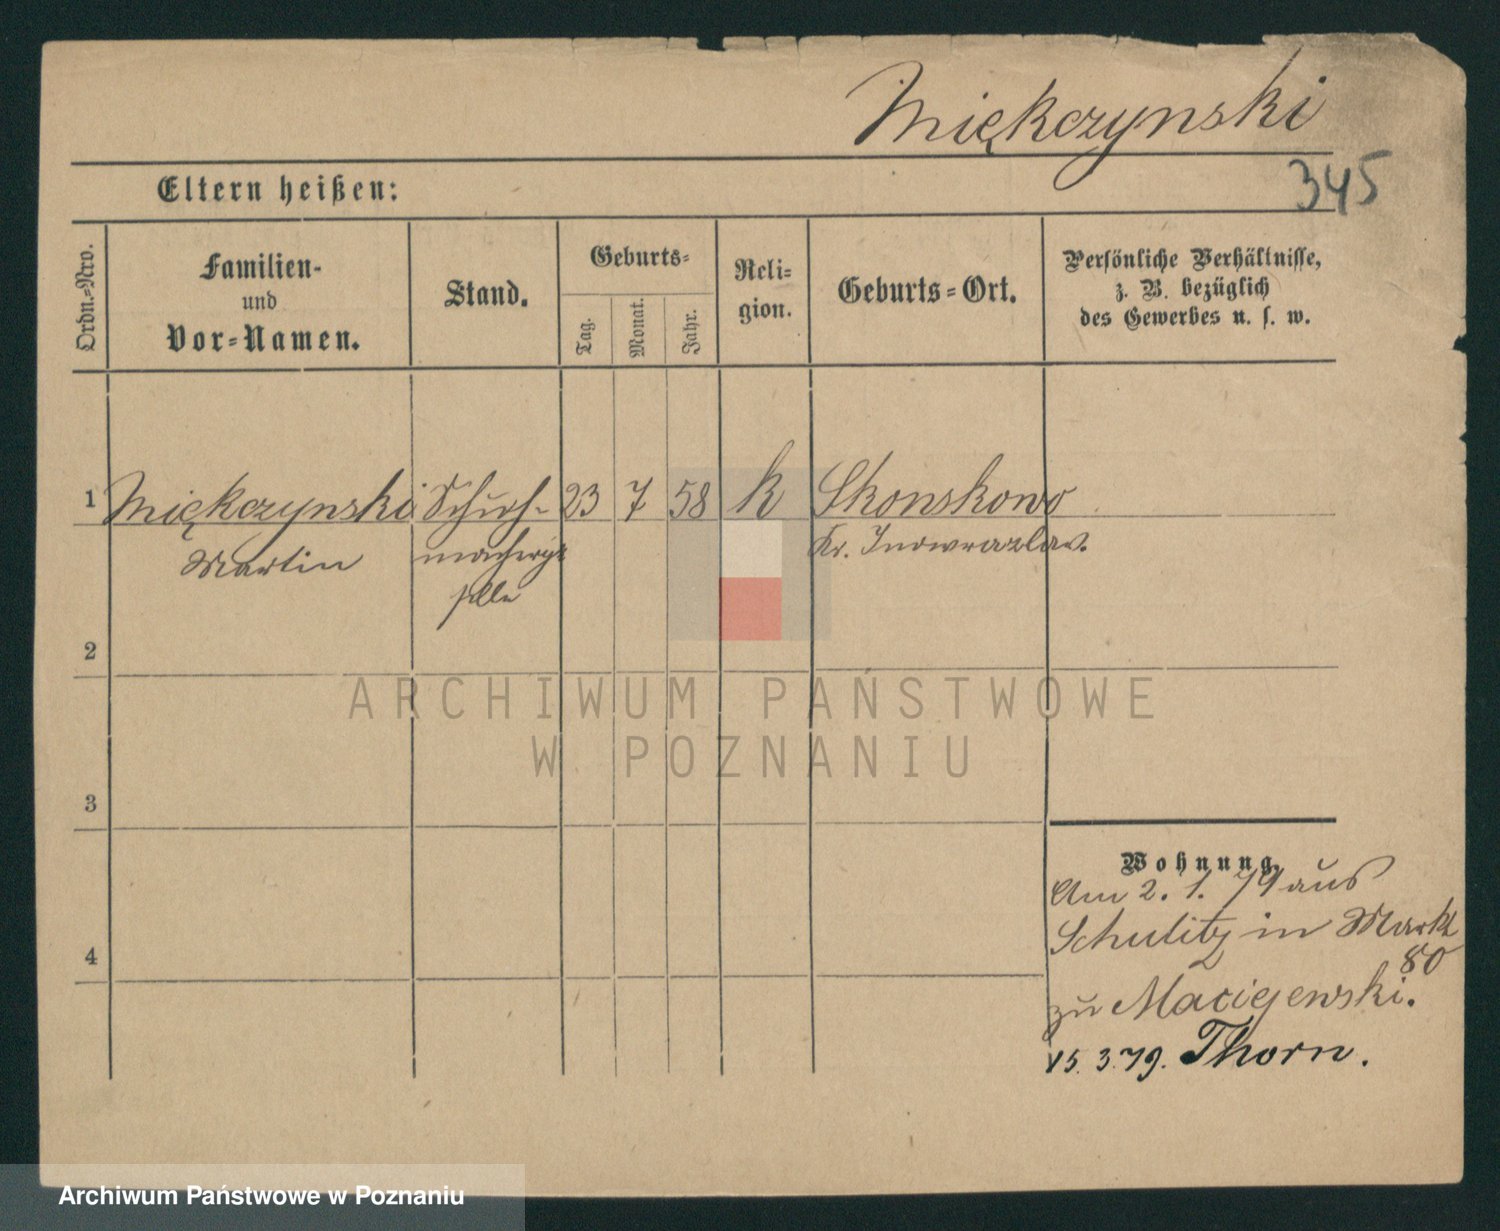 Miękczynski
345
Eltern heißen:
Ordn.-Nro.
Familien-
und
Vor-Namen.
Stand.
Geburts-
Tag.
Monat.
Jahr.
Reli-
gion.
Geburts-Ort.
Persönliche Verhältnisse,
z. B. bezüglich
des Gewerbes u. s. w.
1 Miękczynski Schuh- 23 7 58 k Skonskowo
Martin machergе- Kr. Inowrazlav.
selle
2
3
4
Wohnung.
Am 2. 1. 79 aus
Schulitz in Markt
80
zu Maciejewski.
15. 3. 79. Thorn.
ARCHIWUM PAŃSTWOWE
W POZNANIU
Archiwum Państwowe w Poznaniu